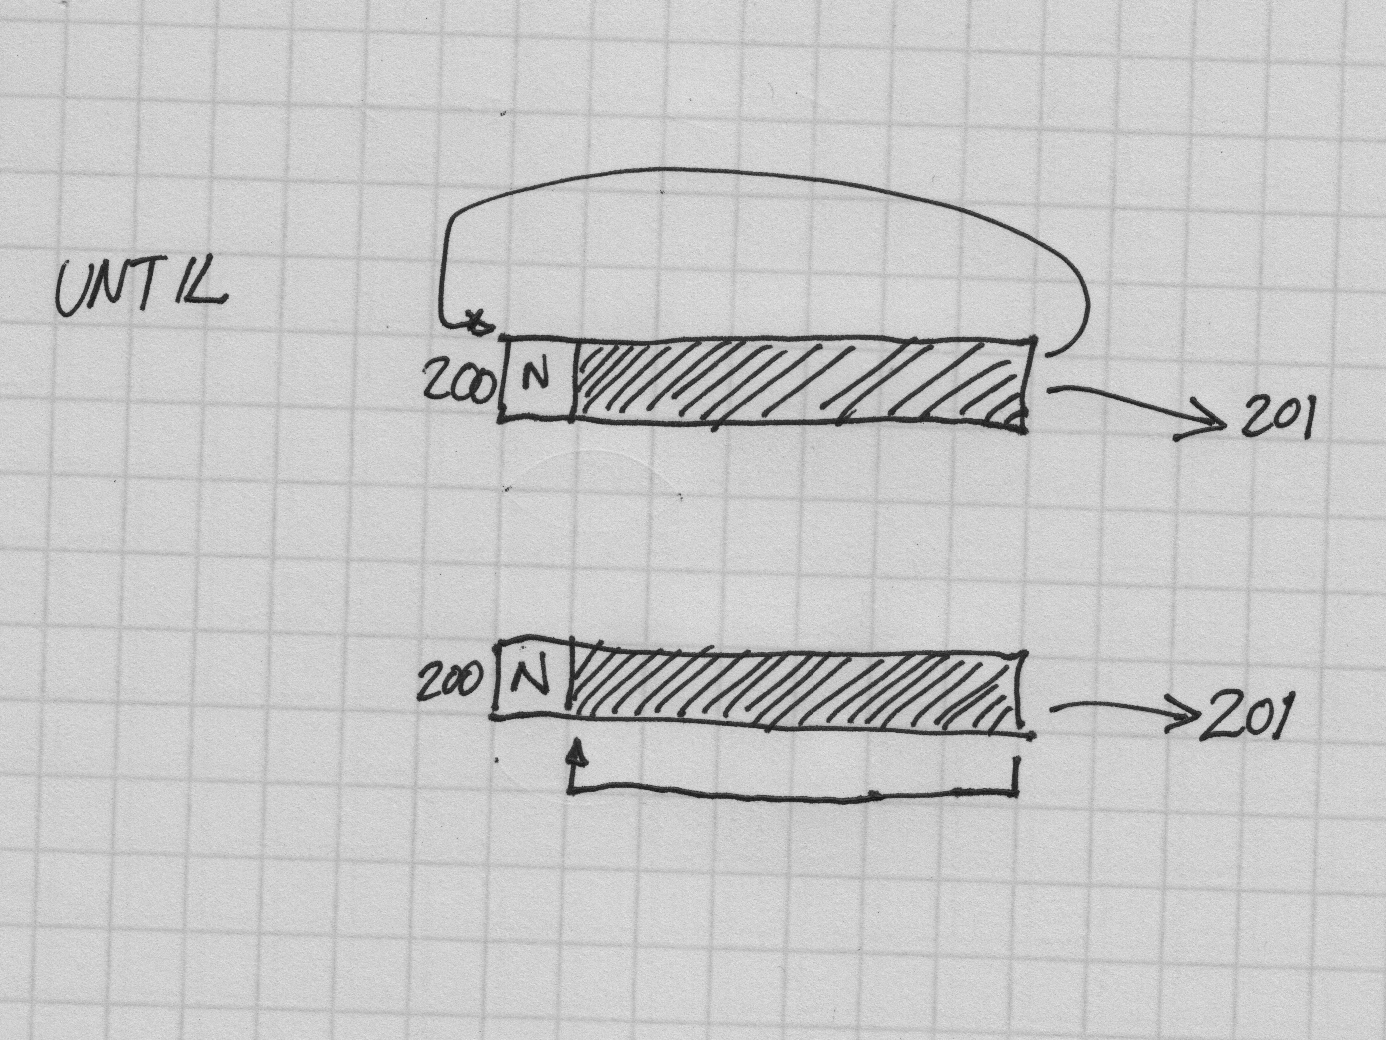 UNTIL
200 N 201
200 N 201